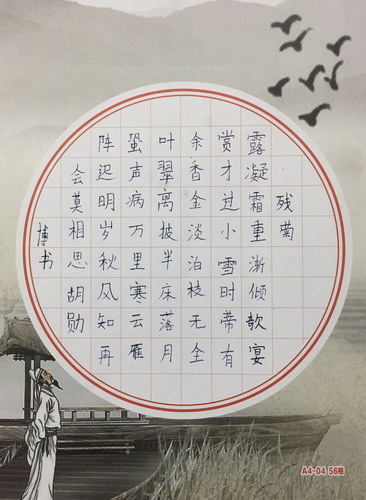 残菊
露凝霜重渐倾欹宴
赏才过小雪时蒂有
余香金淡泊枝无全
叶翠离披半床落月
蛩声病万里寒云雁
阵迟明岁秋风知再
会莫相思胡勋
博书
A4-04 56格